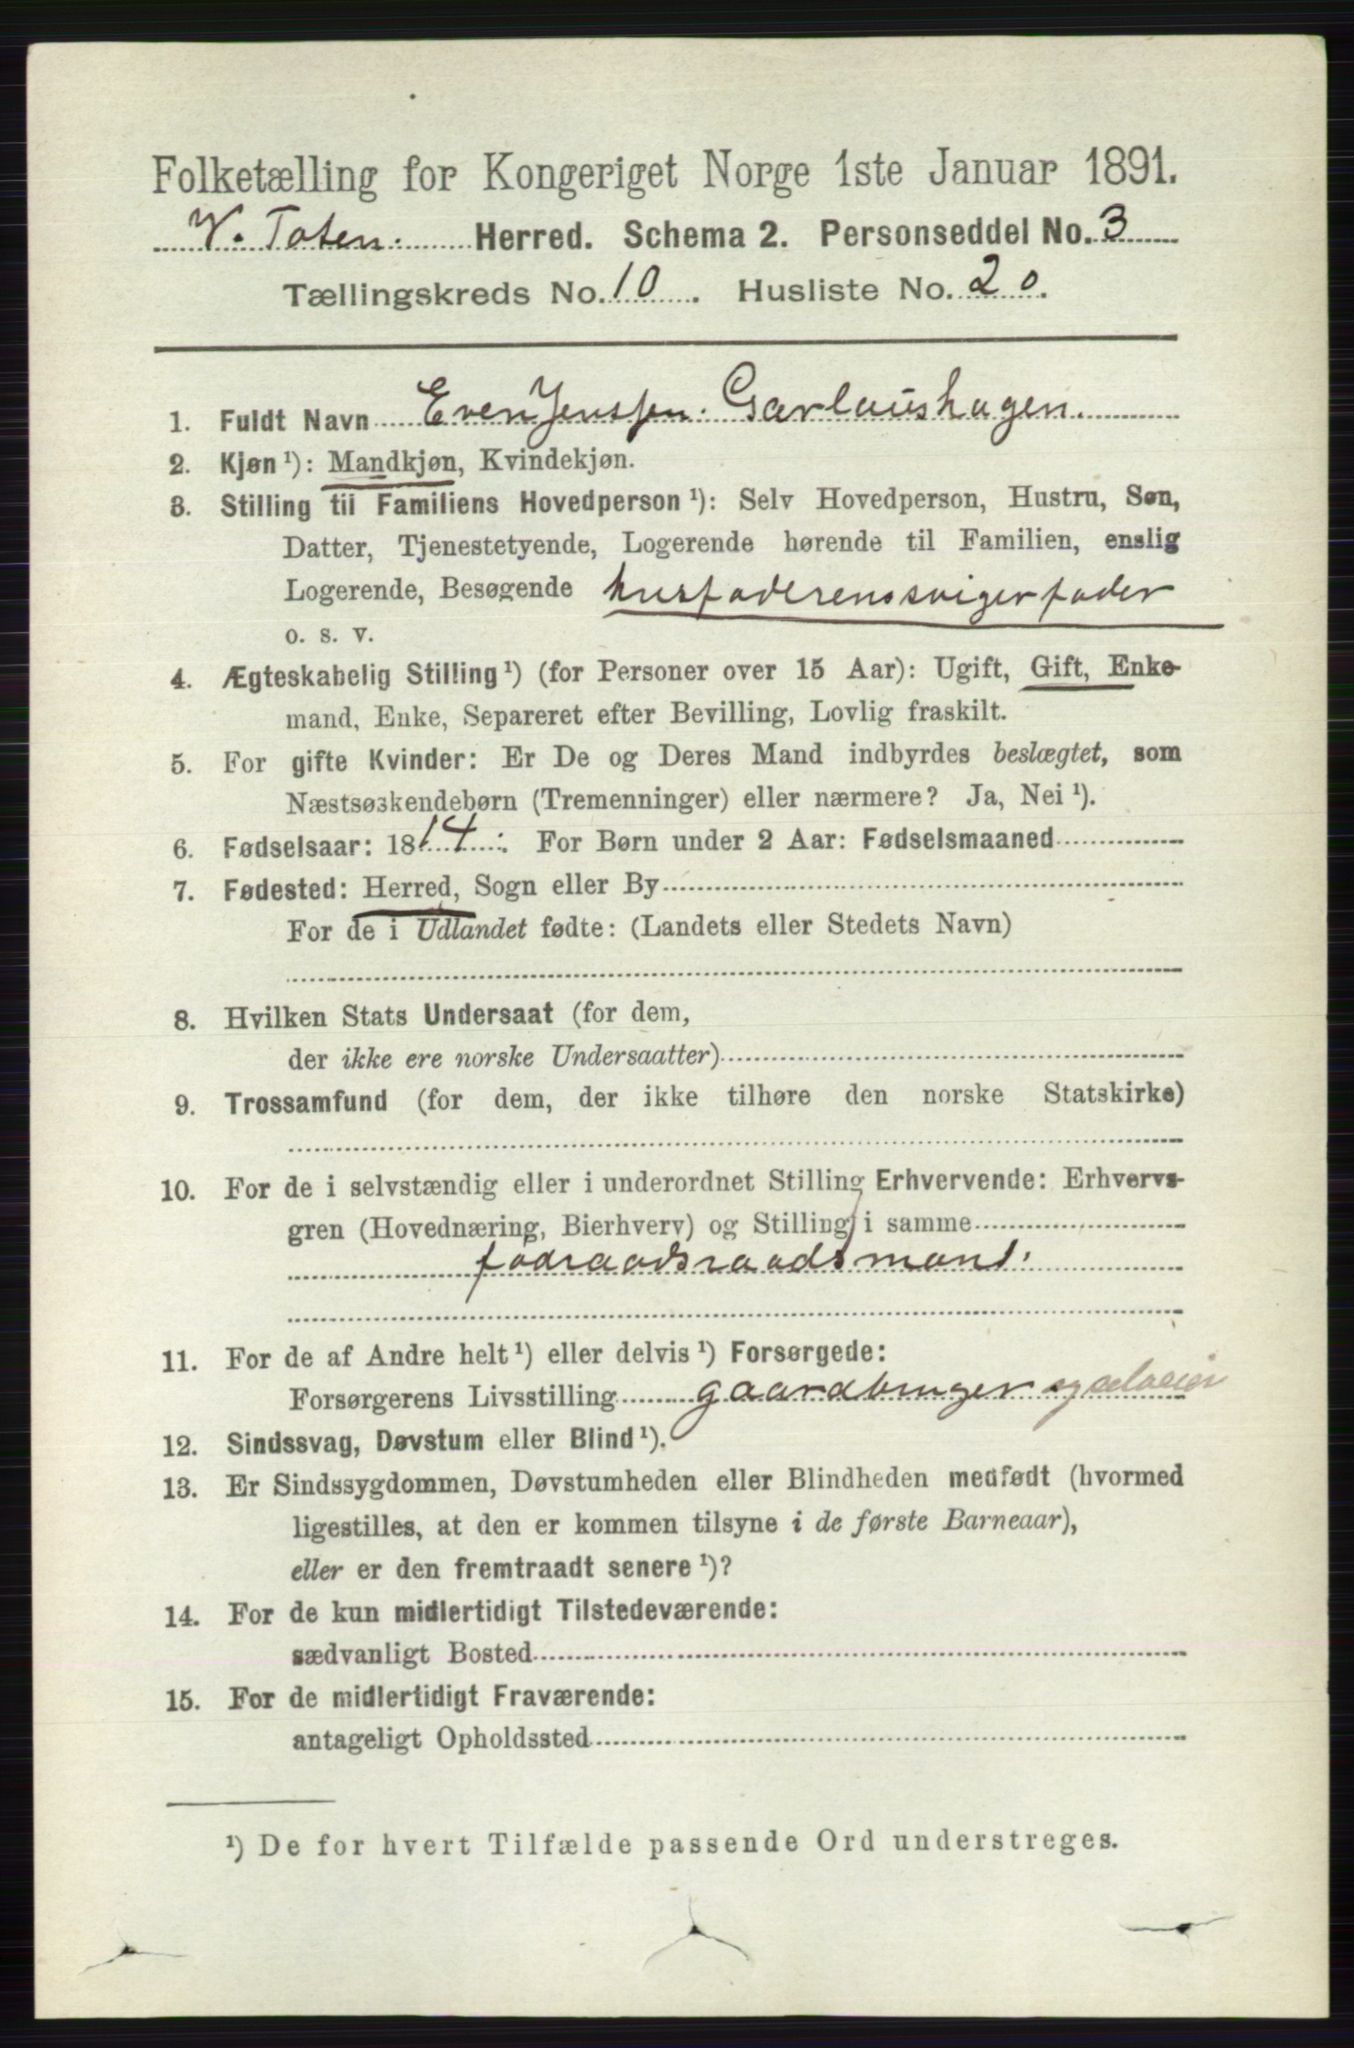 Folketælling for Kongeriget Norge 1ste Januar 1891.
V. Toten. Herred. Schema 2. Personseddel No. 3
Tællingskreds No. 10. Husliste No. 20.
1. Fuldt Navn Even Jenssen. Garlaushagen.
2. Kjøn ¹): Mandkjøn, Kvindekjøn.
3. Stilling til Familiens Hovedperson ¹): Selv Hovedperson, Hustru, Søn,
Datter, Tjenestetyende, Logerende hørende til Familien, enslig
Logerende, Besøgende husfaderens svigerfader
o. s. v.
4. Ægteskabelig Stilling ¹) (for Personer over 15 Aar): Ugift, Gift, Enke-
mand, Enke, Separeret efter Bevilling, Lovlig fraskilt.
5. For gifte Kvinder: Er De og Deres Mand indbyrdes beslægtet, som
Næstsøskendebørn (Tremenninger) eller nærmere? Ja, Nei ¹).
6. Fødselsaar: 1814. For Børn under 2 Aar: Fødselsmaaned
7. Fødested: Herred, Sogn eller By
For de i Udlandet fødte: (Landets eller Stedets Navn)
8. Hvilken Stats Undersaat (for dem,
der ikke ere norske Undersaatter)
9. Trossamfund (for dem, der ikke tilhøre den norske Statskirke)
10. For de i selvstændig eller i underordnet Stilling Erhvervende: Erhvervs-
gren (Hovednæring, Bierhverv) og Stilling i samme
fodraadsraadsmand.
11. For de af Andre helt ¹) eller delvis ¹) Forsørgede:
Forsørgerens Livsstilling gaardbruger og selveier
12. Sindssvag, Døvstum eller Blind ¹).
13. Er Sindssygdommen, Døvstumheden eller Blindheden medfødt (hvormed
ligestilles, at den er kommen tilsyne i de første Barneaar),
eller er den fremtraadt senere ¹)?
14. For de kun midlertidigt Tilstedeværende:
sædvanligt Bosted
15. For de midlertidigt Fraværende:
antageligt Opholdssted
¹) De for hvert Tilfælde passende Ord understreges.